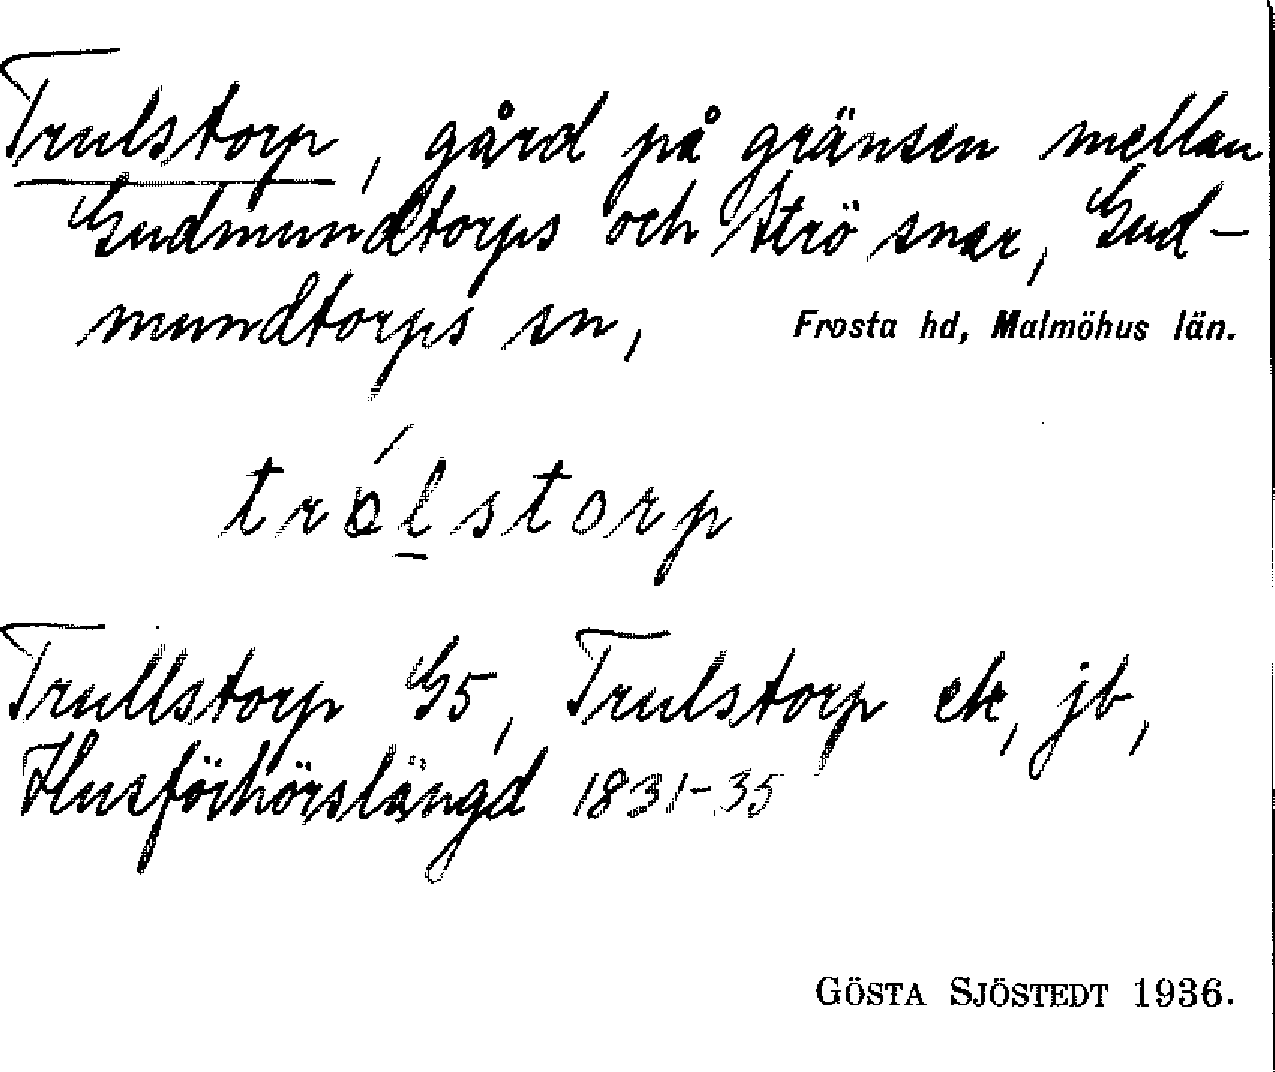 Trulstorp, gård på gränsen mellan
Gudmundtorps och Strö snar, Gud-
mundtorps sn, Frosta hd, Malmöhus län.
trólstorp
Trullstorp G5, Trulstorp ek, jb,
Husförhörslängd 1831-35
GÖSTA SJÖSTEDT 1936.